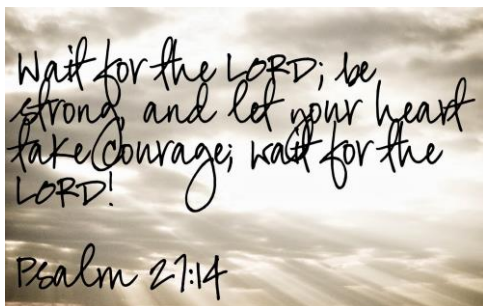 Wait for the LORD; be
strong, and let your heart
take Courage; wait for the
LORD!
Psalm 27:14